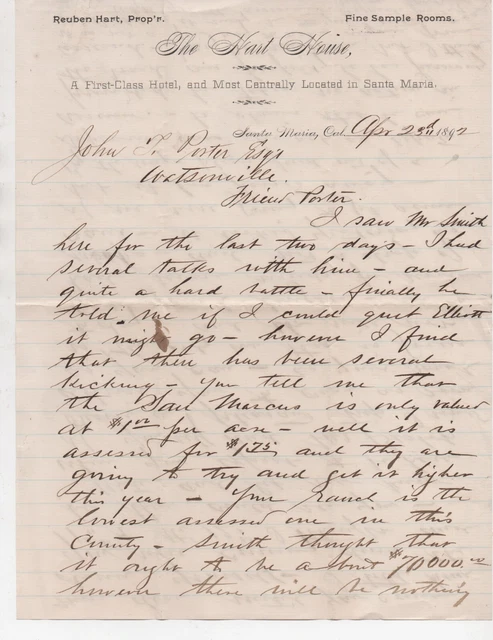 Reuben Hart, Prop'r. Fine Sample Rooms.
The Hart House,
A First-Class Hotel, and Most Centrally Located in Santa Maria.
Santa Maria, Cal. Apr 23d 1892
John T. Porter Esqr
Watsonville.
Friend Porter.
I saw Mr Smith
here for the last two days - I had
several talks with him - and
quite a hard rattle - finally he
told me if I could quiet Elliott
it might go - however I find
that there has been several
kicking - You tell me that
the San Marcus is only valued
at $1.00 per acre - well it is
assessed for $1.75 and they are
going to try and get it higher
this year - Your Ranch is the
lowest assessed one in this
County - Smith thought that
it ought to be about $70000.00
however there will be nothing